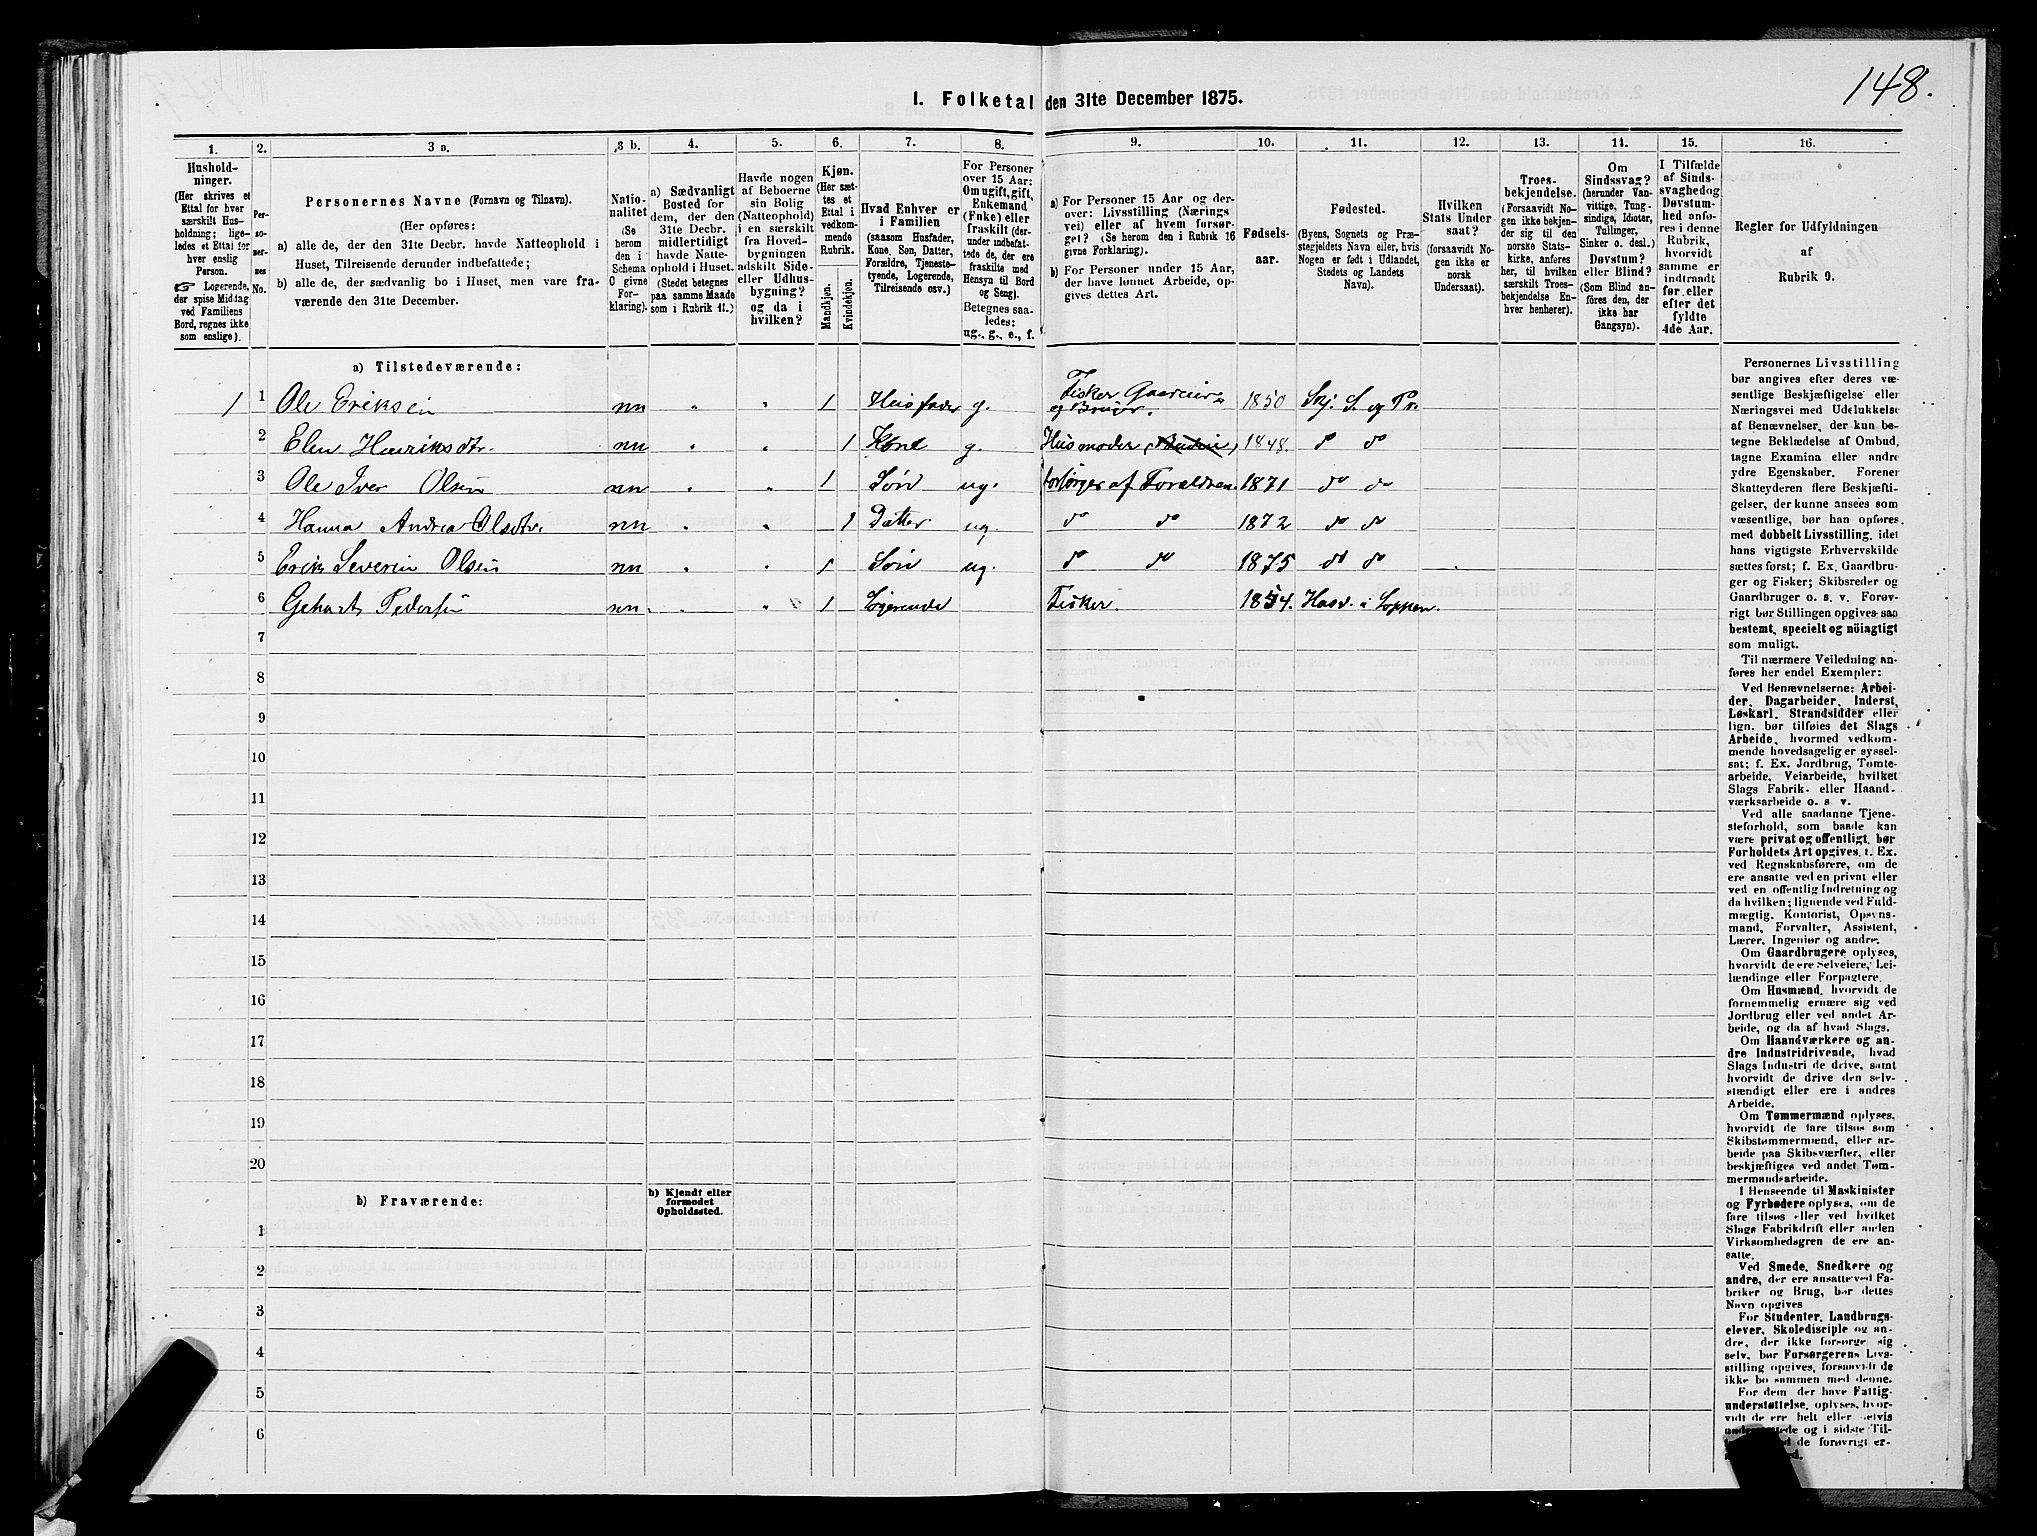 148.
I. Folketal den 31te December 1875.
1. 2. 3 a. 3 b. 4. 5. 6. 7. 8. 9. 10. 11. 12. 13. 14. 15. 16.
Hushold-
ninger.
(Her skrives et
Ettal for hver
særskilt Hus-
holdning; lige-
ledes et Ettal for
hver enslig
Person.
☞ Logerende,
der spise Middag
ved Familiens
Bord, regnes ikke
som enslige).
Per-
so-
ner-
nes
No.
Personernes Navne (Fornavn og Tilnavn).
(Her opføres:
a) alle de, der den 31te Decbr. havde Natteophold i
Huset, Tilreisende derunder indbefattede;
b) alle de, der sædvanlig bo i Huset, men vare fra-
værende den 31te December.
Natio-
nalitet
(Se
herom
den i
Schema
C givne
For-
klaring).
a) Sædvanligt
Bosted for
dem, der den
31te Decbr.
midlertidigt
havde Natte-
ophold i Huset.
(Stedet betegnes
paa samme Maade
som i Rubrik 11.)
Havde nogen
af Beboerne
sin Bolig
(Natteophold)
i en særskilt
fra Hoved-
bygningen
adskilt Side-
eller Udhus-
bygning?
og da i
hvilken?
Kjøn.
(Her sæt-
tes et
Ettal i
vedkom-
mende
Rubrik.
Mandkjøn.
Kvindekjøn.
Hvad Enhver er
i Familien
(saasom Husfader,
Kone, Søn, Datter,
Forældre, Tjeneste-
tyende, Logerende,
Tilreisende osv.)
For Personer
over 15 Aar:
Om ugift, gift,
Enkemand
(Enke) eller
fraskilt (der-
under indbefat-
tede de, der ere
fraskilte med
Hensyn til Bord
og Seng).
Betegnes saa-
ledes:
ug., g., e., f.
a) For Personer 15 Aar og der-
over: Livsstilling (Nærings
vei) eller af hvem forsør-
get? (Se herom den i Rubrik 16
givne Forklaring).
b) For Personer under 15 Aar,
der have lønnet Arbeide, op-
gives dettes Art.
Fødsels-
aar.
Fødested.
(Byens, Sognets og Præ-
stegjeldets Navn eller, hvis
Nogen er født i Udlandet,
Stedets og Landets
Navn).
Hvilken
Stats Under
saat?
(forsaavidt No-
gen ikke er
norsk
Undersaat).
Troes-
bekjendelse.
(Forsaavidt No-
gen ikke bekjen-
der sig til den
norske Stats-
kirke, anføres
her, til hvilken
særskilt Troes-
bekjendelse En-
hver henhører).
Om
Sindssvag?
(herunder Van-
vittige, Tung-
sindige, Idioter,
Tullinger,
Sinker o. desl.)
Døvstum?
eller Blind?
(Som Blind an-
føres den, der
ikke har
Gangsyn).
I Tilfælde
af Sinds-
svaghed og
Døvstum-
hed anfø-
res i denne
Rubrik,
hvorvidt
samme er
indtraadt
før eller
efter det
fyldte
4de Aar.
Regler for Udfyldningen
af
Rubrik 9.
a) Tilstedeværende:
1 1 Ole Eriksen nn " " 1 Husfader g. Fisker Gaardeier og Bruger. 1850 Skj. S. og Pr.
2 Elen Henriksdtr. nn " " 1 Kone g. Husmoder 1848. do do
3 Ole Iver Olsen nn " " 1 Søn ug. forsørges af Foreldrene 1871 do do
4 Hanna Andrea Olsdtr. nn " " 1 Datter ug. do do 1872 do do
5 Erik Severin Olsen nn " " 1 Søn ug. do do 1875 do do
6 Gehart Pedersen nn. " " 1 Logerende Fisker. 1854. Hasv. i Loppen.
7
8
9
10
11
12
13
14
15
16
17
18
19
20
b) Fraværende:
b) Kjendt eller
formodet
Opholdssted.
1
2
3
4
5
6
Personernes Livsstilling
bør angives efter deres væ-
sentlige Beskjæftigelse eller
Næringsvei med Udelukkelse
af Benævnelser, der kun be-
tegne Beklædelse af Ombud,
tagne Examina eller andre
ydre Egenskaber. Forener
Skatteyderen flere Beskjæfti-
gelser, der kunne ansees som
væsentlige, bør han opføres
med dobbelt Livsstilling, idet
hans vigtigste Erhvervskilde
sættes først; f. Ex. Gaardbru-
ger og Fisker; Skibsreder og
Gaardbruger o. s. v. Forøv-
rigt bør Stillingen opgives saa
bestemt, specielt og nöiagtigt
som muligt.
Til nærmere Veiledning an-
føres her endel Exempler:
Ved Benævnelserne: Arbei-
der, Dagarbeider, Inderst,
Løskarl, Strandsidder eller
lign. bør tilføies det Slags
Arbeide, hvormed vedkom-
mende hovedsagelig er syssel-
sat; f. Ex. Jordbrug, Tømte-
arbeide, Veiarbeide, hvilket
Slags Fabrik- eller Haand-
værksarbeide o. s. v.
Ved alle saadanne Tjene-
steforhold, som baade kan
være privat og offentligt, bør
Forholdets Art opgives, t. Ex.
ved Regnskabsførere, om de
ere ansatte ved en privat eller
ved en offentlig Indretning og
da hvilken; lignende ved Fuld-
mægtig, Kontorist, Opsyns-
mand, Forvalter, Assistent,
Lærer, Ingeniør og andre.
Om Gaardbrugere oplyses,
hvorvidt de ere Selveiere, Lei-
lændinge eller Forpagtere.
Om Husmænd, hvorvidt de
fornemmelig ernære sig ved
Jordbrug eller ved andet Ar-
beide, og da af hvad Slags.
Om Haandværkere og an-
dre Industridrivende, hvad
Slags Industri de drive, samt
hvorvidt de drive den selv-
stændigt eller ere i andres
Arbeide.
Om Tømmermænd oplyses,
hvorvidt de fare tilsøs som
Skibstømmermænd, eller ar-
beide paa Skibsværfter, eller
beskjæftiges ved andet Tøm-
mermandsarbeide.
I Henseende til Maskinister
og Fyrbødere oplyses, om de
fare tilsøs eller ved hvilket
Slags Fabrikdrift eller anden
Virksomhedsgren de ere an-
satte.
Ved Smede, Snedkere og
andre, der ere ansatte ved Fa-
briker og Brug, bør dettes
Navn opgives
For Studenter, Landbrugs-
elever, Skoledisciple og an-
dre, der ikke forsørge sig
selv, bør Forsørgerens Livs-
stilling opgives, forsaavidt de
ikke bo sammen med denne.
For dem, der have Fattig-
understøttelse, oplyses, hvor-
vidt de ere helt eller delvis
og i sidste Til-
de forøvrigt er-